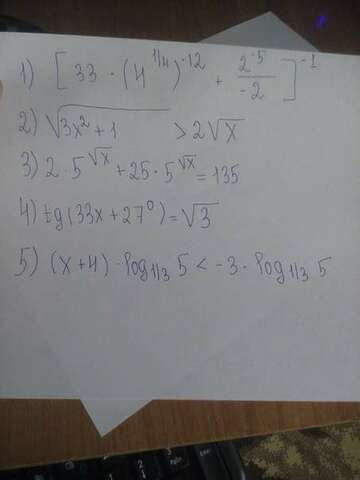 1) [33 · (4^{1/4})^{-12} + \frac{2^{-5}}{-2}]^{-1}
2) √(3x² + 1) > 2√x
3) 2 · 5^{√x} + 25 · 5^{√x} = 135
4) tg(33x + 27°) = √3
5) (x + 4) · log_{1/3} 5 < -3 · log_{1/3} 5